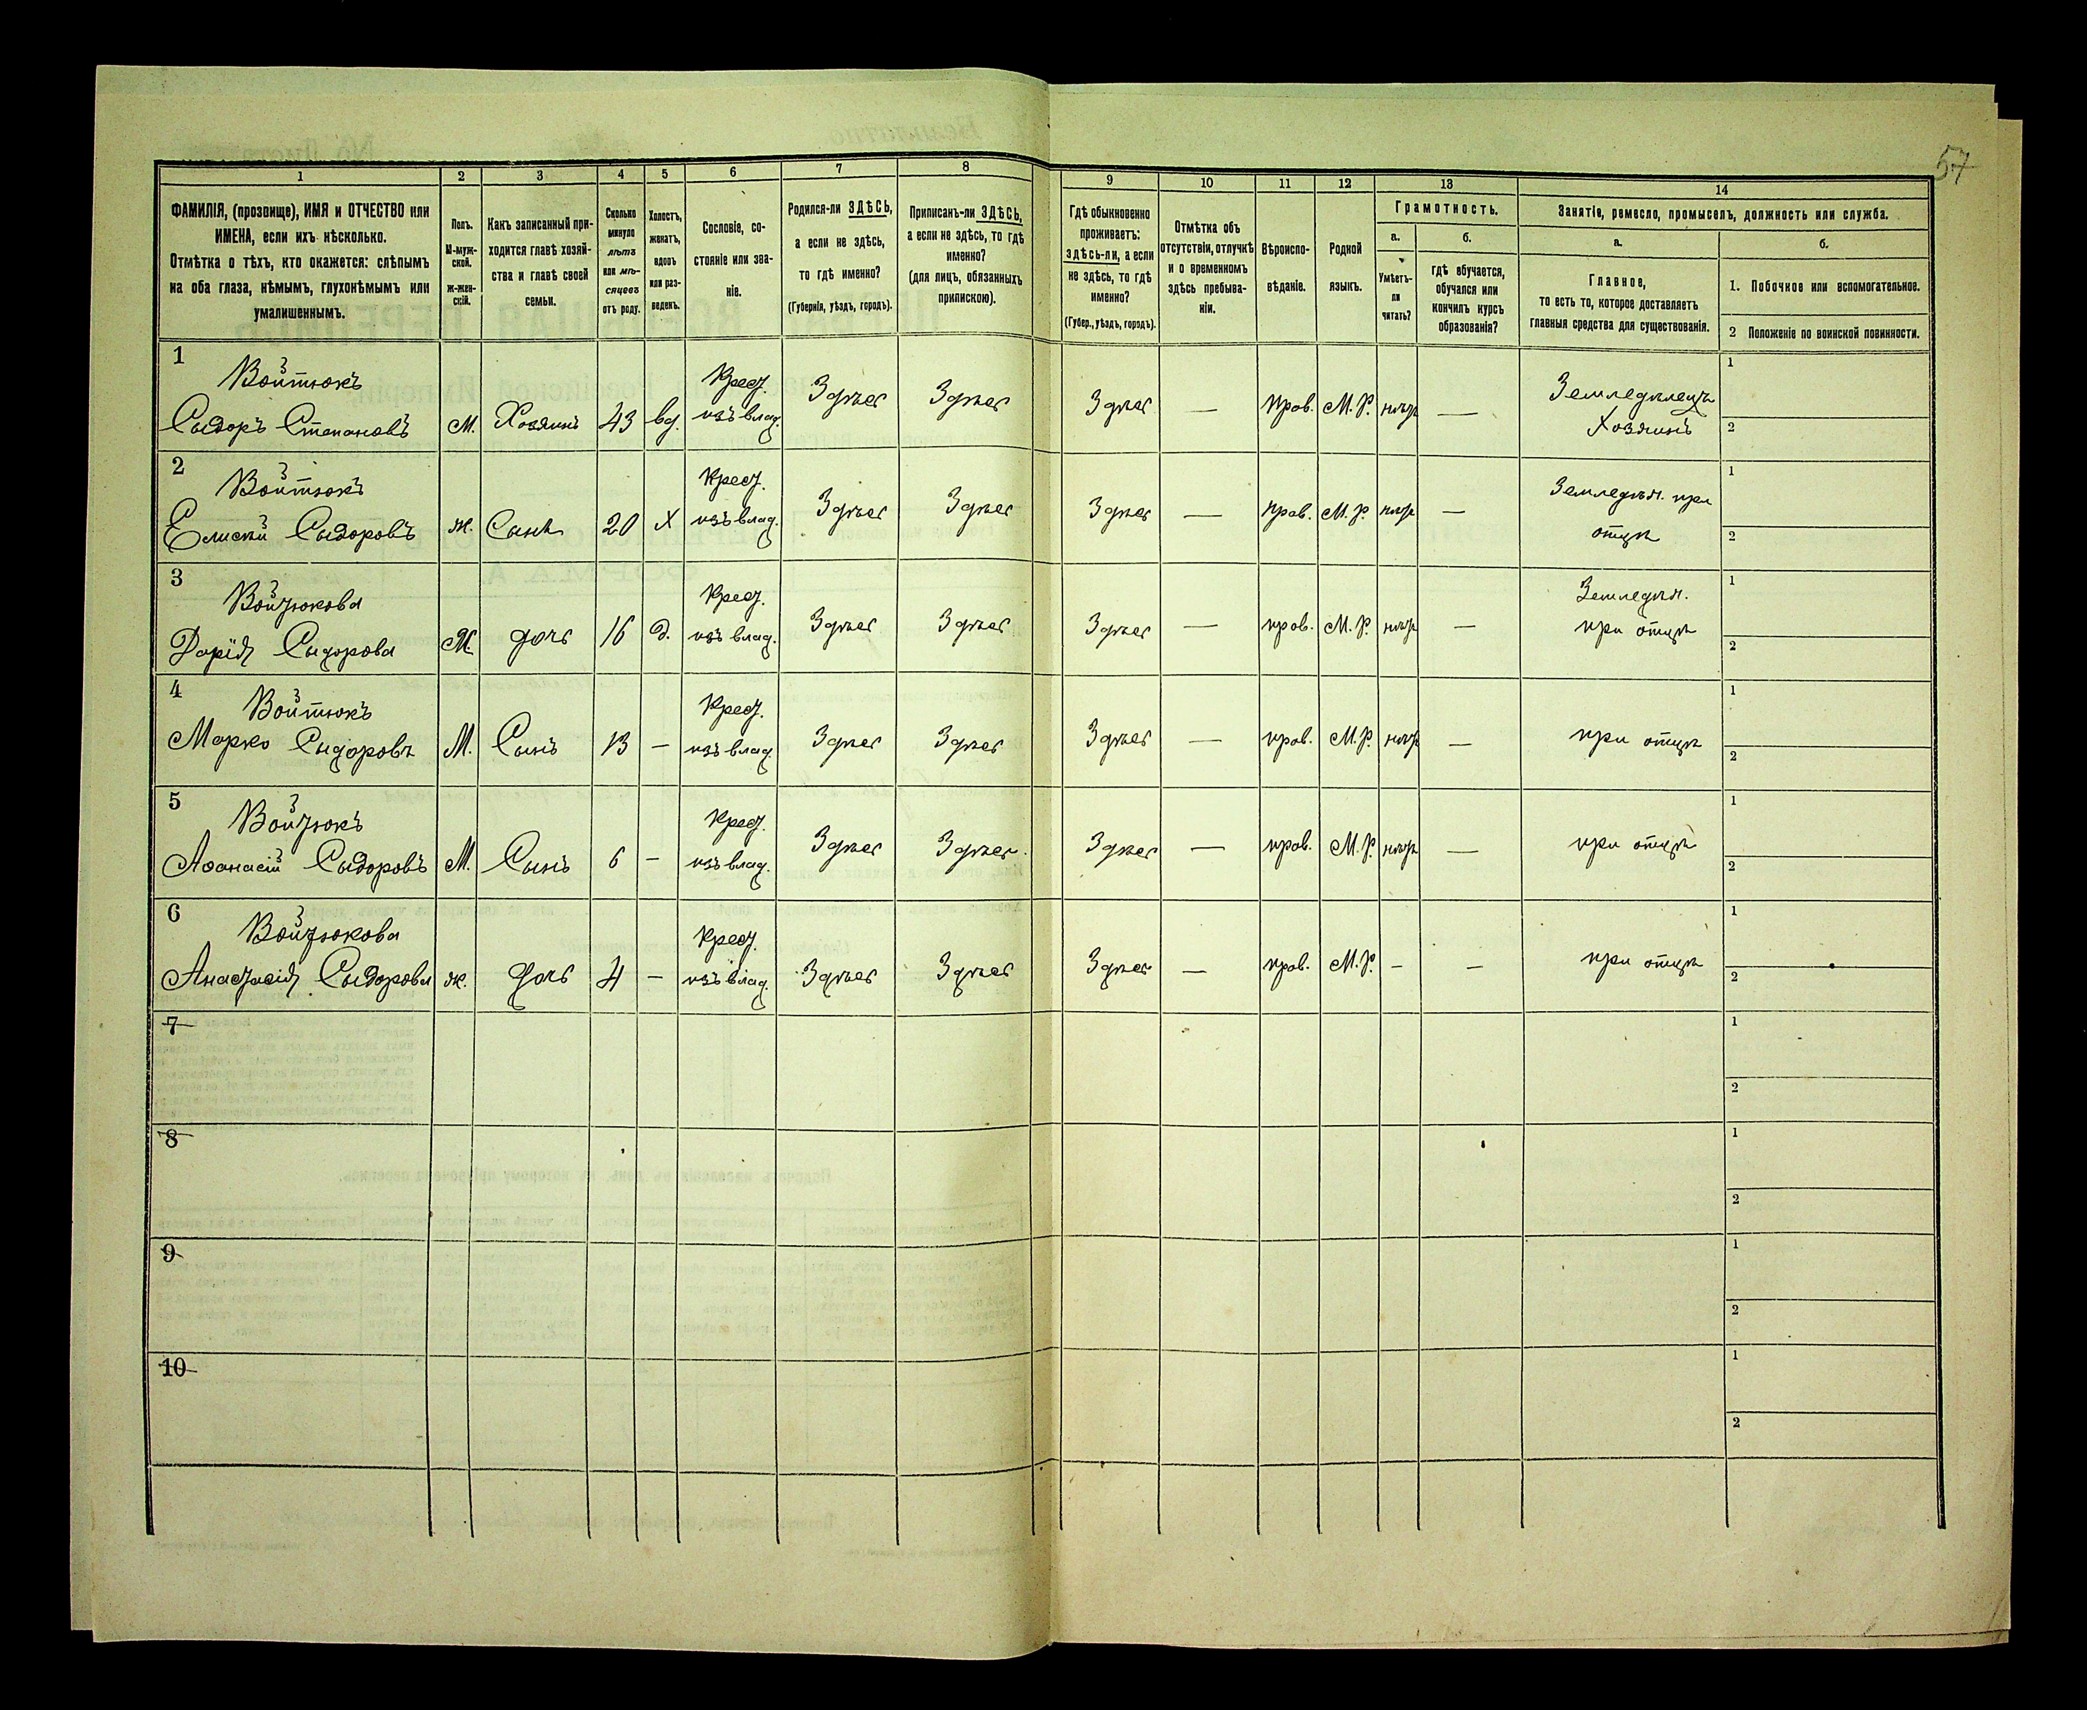 57
1 2 3 4 5 6 7 8 9 10 11 12 13 14
ФАМИЛІЯ, (прозвище), ИМЯ и ОТЧЕСТВО или
ИМЕНА, если ихъ нѣсколько.
Отмѣтка о тѣхъ, кто окажется: слѣпымъ
на оба глаза, нѣмымъ, глухонѣмымъ или
умалишеннымъ.
Полъ.
М-муж-
ской.
ж-жен-
скій.
Какъ записанный при-
ходится главѣ хозяй-
ства и главѣ своей
семьи.
Сколько
минуло
лѣтъ
или мѣ-
сяцевъ
отъ роду.
Холостъ,
женатъ,
вдовъ
или раз-
веденъ.
Сословіе, со-
стояніе или зва-
ніе.
Родился-ли ЗДѢСЬ,
а если не здѣсь,
то гдѣ именно?
(Губернія, уѣздъ, городъ).
Приписанъ-ли ЗДѢСЬ,
а если не здѣсь, то гдѣ
именно?
(для лицъ, обязанныхъ
припискою).
Гдѣ обыкновенно
проживаетъ:
здѣсь-ли, а если
не здѣсь, то гдѣ
именно?
(Губер., уѣздъ, городъ).
Отмѣтка объ
отсутствіи, отлучкѣ
и о временномъ
здѣсь пребыва-
ніи.
Вѣроиспо-
вѣданіе.
Родной
языкъ.
Грамотность.
а.
Умѣетъ-
ли
читать?
б.
гдѣ обучается,
обучался или
кончилъ курсъ
образованія?
Занятіе, ремесло, промыселъ, должность или служба.
а.
Главное,
то есть то, которое доставляетъ
главныя средства для существованія.
б.
1. Побочное или вспомогательное.
2 Положеніе по воинской повинности.
1 Войтюкъ Крест. Земледѣлецъ 1
Сыдоръ Степановъ М. Хозяинъ 43 вд. изъ влад. Здѣсь Здѣсь Здѣсь — Прав. М. Р. нѣтъ — Хозяинъ 2
2 Войтюкъ Крест. Земледѣл. при 1
Елисѣй Сыдоровъ ж. Сынъ 20 Х изъ влад. Здѣсь Здѣсь Здѣсь — Прав. М. Р. нѣтъ — отцѣ 2
3 Войтюкова Крест. Земледѣл. 1
Дарія Сыдорова Ж. дочь 16 д. изъ влад. Здѣсь Здѣсь Здѣсь — прав. М. Р. нѣтъ — при отцѣ 2
4 Войтюкъ Крест. 1
Марко Сыдоровъ М. Сынъ 13 — изъ влад. Здѣсь Здѣсь Здѣсь — прав. М. Р. нѣтъ — при отцѣ 2
5 Войтюкъ Крест. 1
Аѳанасій Сыдоровъ М. Сынъ 6 — изъ влад. Здѣсь Здѣсь Здѣсь — прав. М. Р. нѣтъ — при отцѣ 2
6 Войтюкова Крест. 1
Анастасія Сыдорова ж. дочь 4 — изъ влад. Здѣсь Здѣсь Здѣсь — прав. М. Р. — — при отцѣ 2
7 1
2
8 1
2
9 1
2
10 1
2